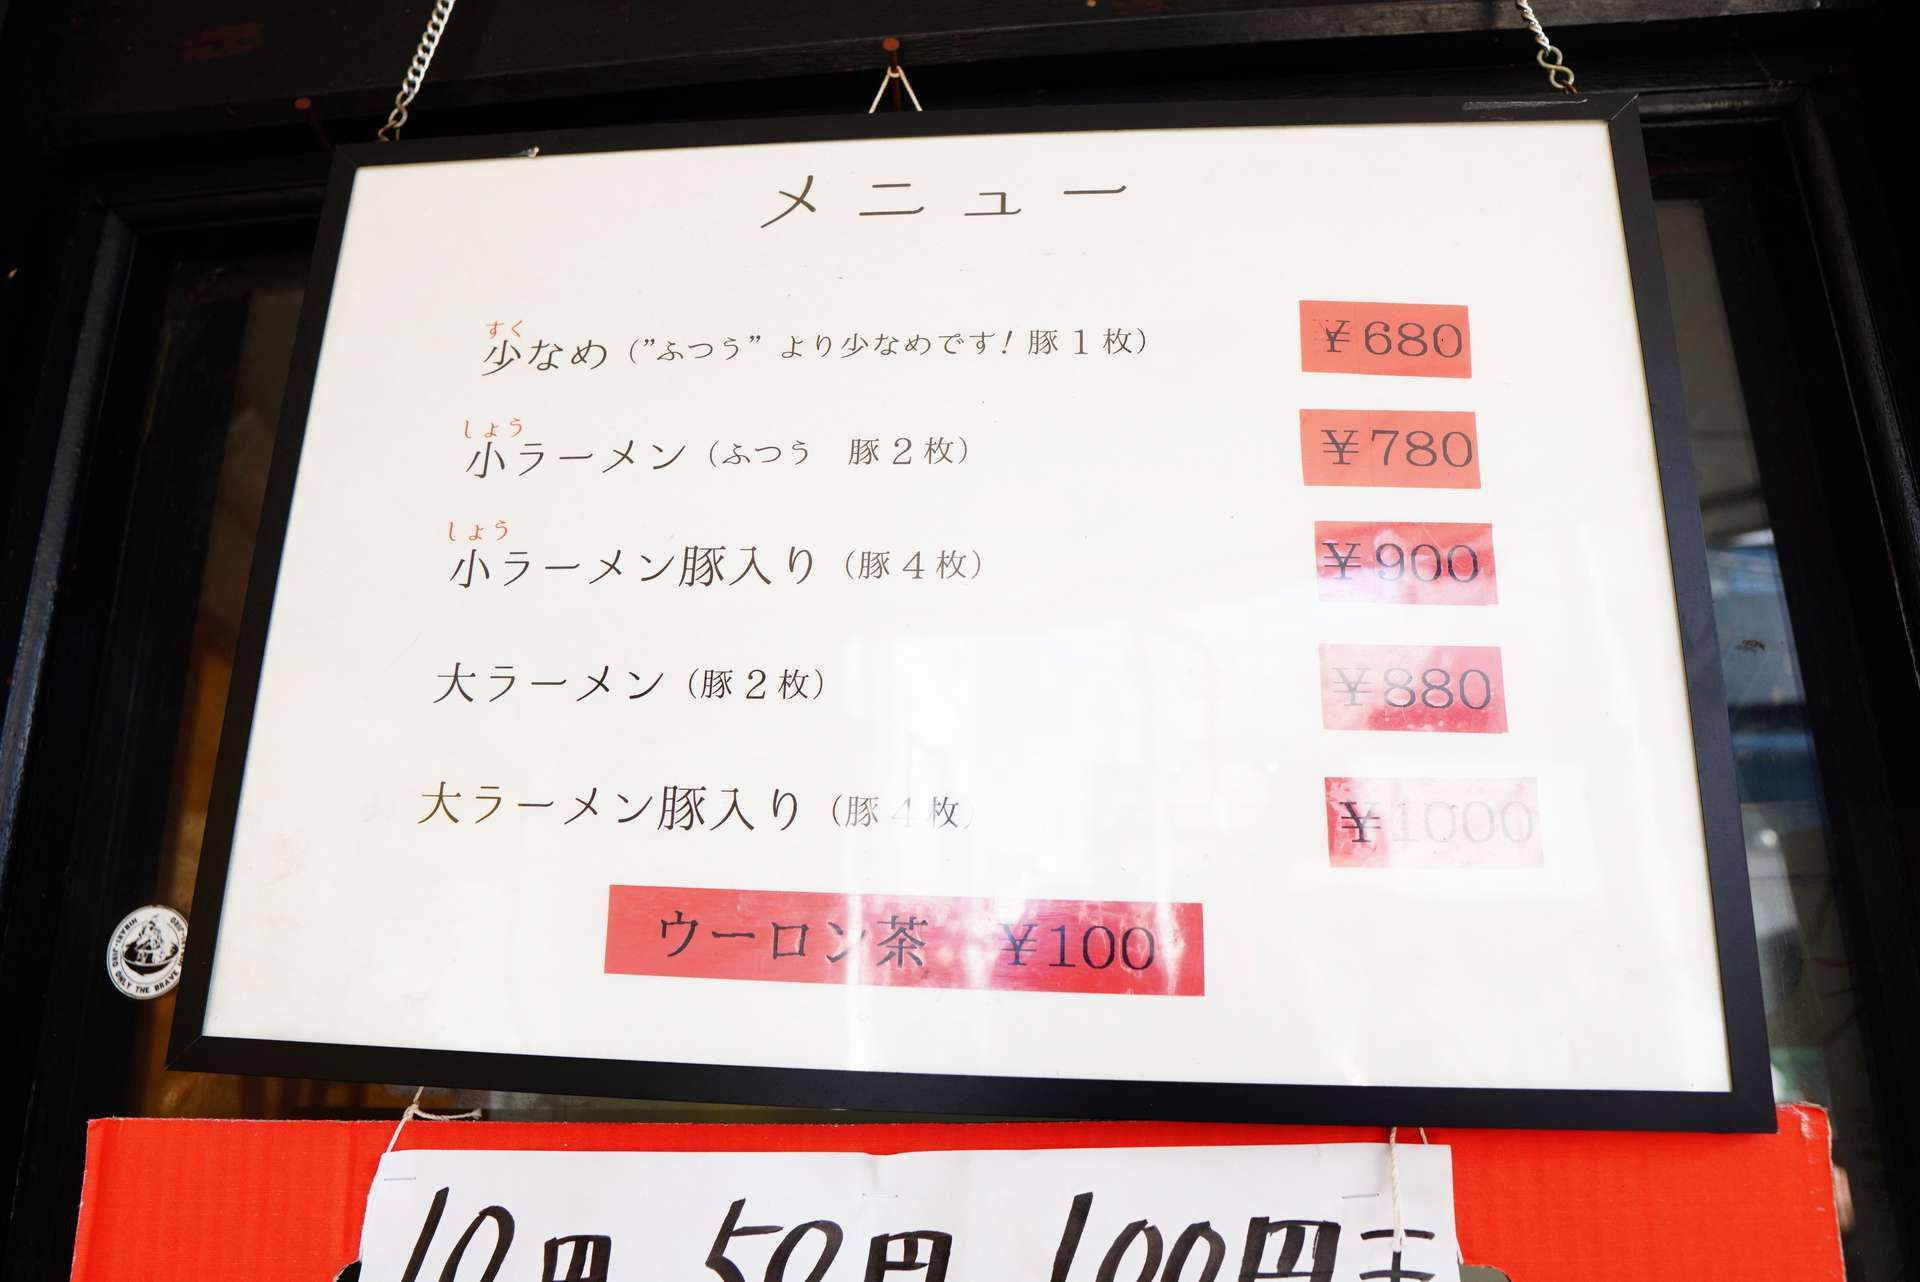 メニュー
すく
少なめ（”ふつう”より少なめです！豚１枚） ￥680
しょう
小ラーメン（ふつう　豚２枚） ￥780
しょう
小ラーメン豚入り（豚４枚） ￥900
大ラーメン（豚２枚） ￥880
大ラーメン豚入り（豚４枚） ￥1000
ウーロン茶　￥100
ONLY THE BRAVE
10円 50円 100円